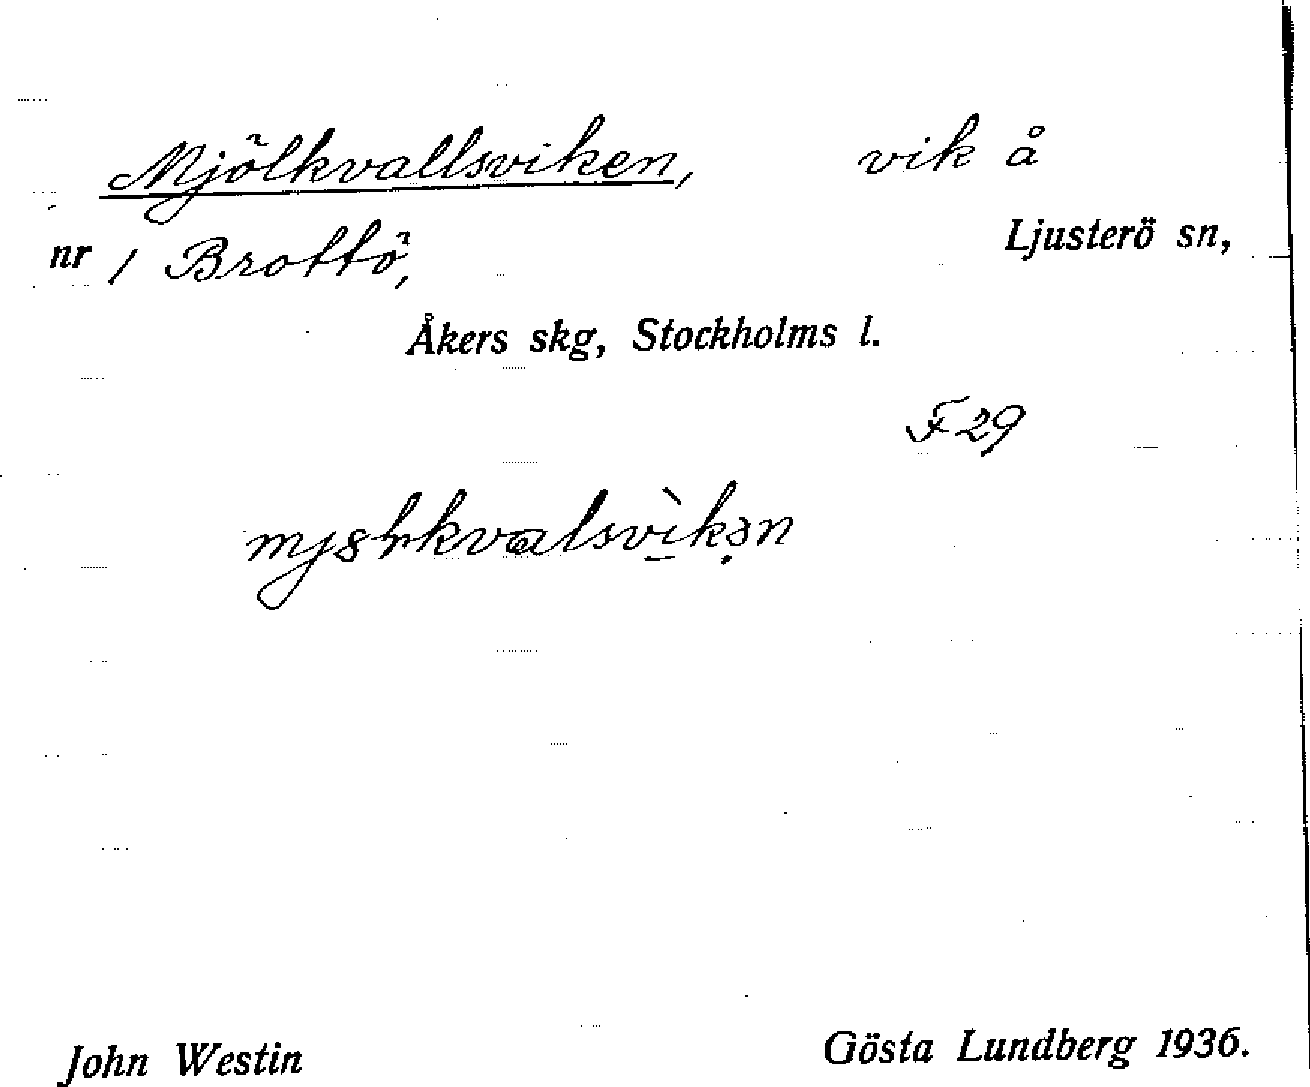 Mjölkvallsviken, vik å
nr 1 Brottö, Ljusterö sn,
Åkers skg, Stockholms l.
F 29
John Westin Gösta Lundberg 1936.